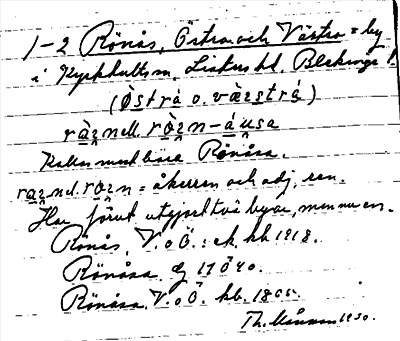 1–2 Rönås, Östra och Västra = by
i Kyrkhults sn, Listers hd, Blekinge l.
(Ö̀strá o. væ̀strá)
ràn ell. ròn-áusa
Kallas med bara Rönåsa.
ran el. ron = åkerren och adj. ren.
Har förut utgjort två byar, men nu en.
Rönås, V. o Ö. : ek. kb 1918.
Rönåsa dj 17040.
Rönåsa, V. o Ö. kb. 18
Th. Månsson 1930.